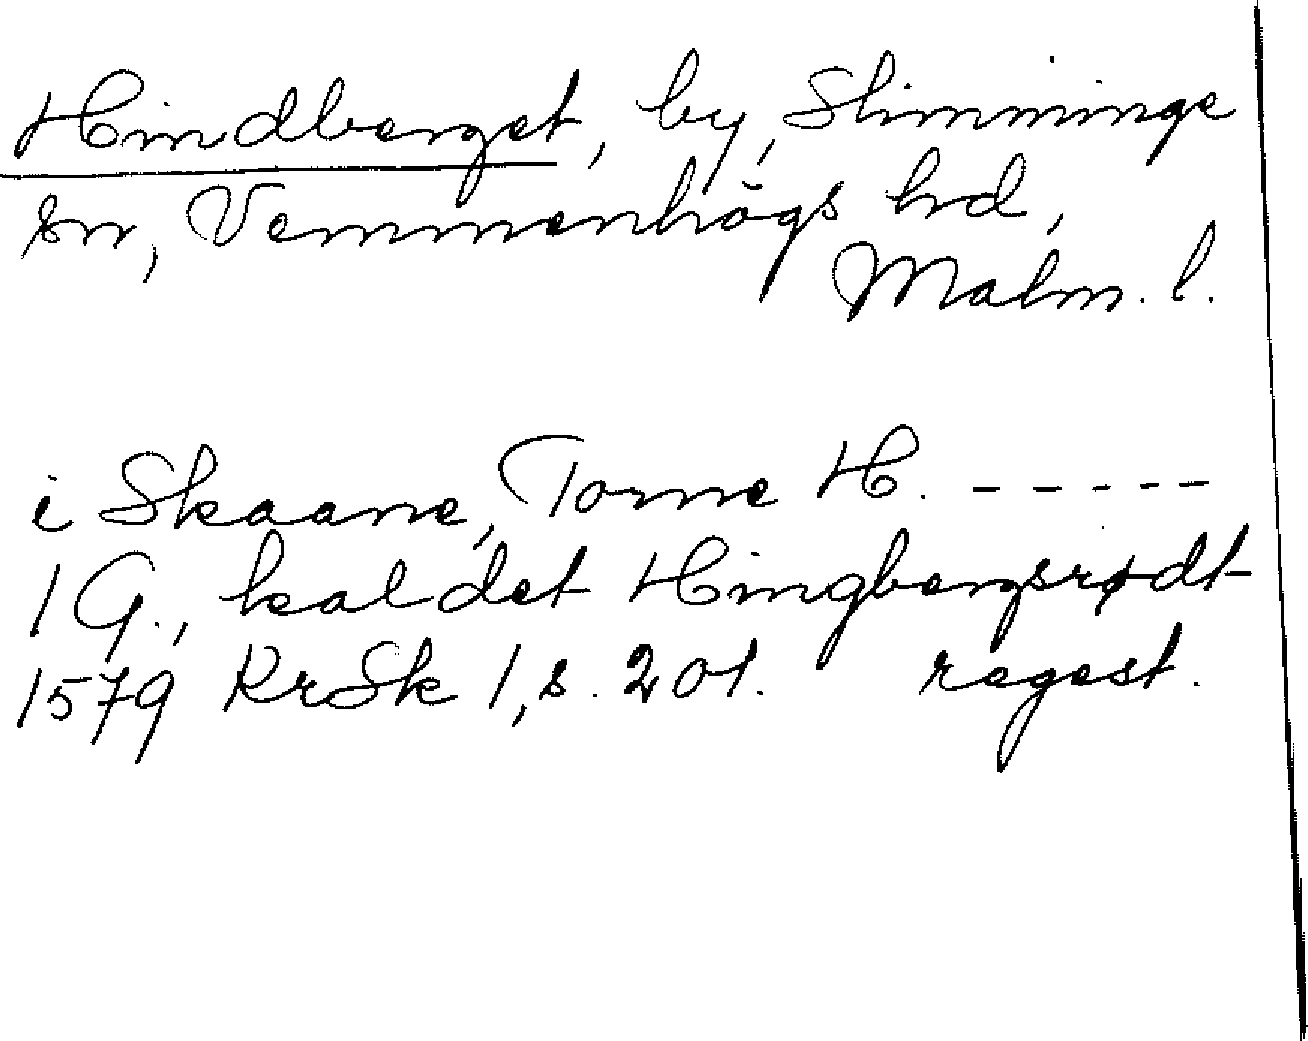 Hindberget, by, Slimminge
sn, Vemmenhögs hd,
Malm. l.
i Skaane, Torne H. - - - - -
1 G., kaldet Hingbergsrødt
1579 KrSk 1, s. 201. regest.